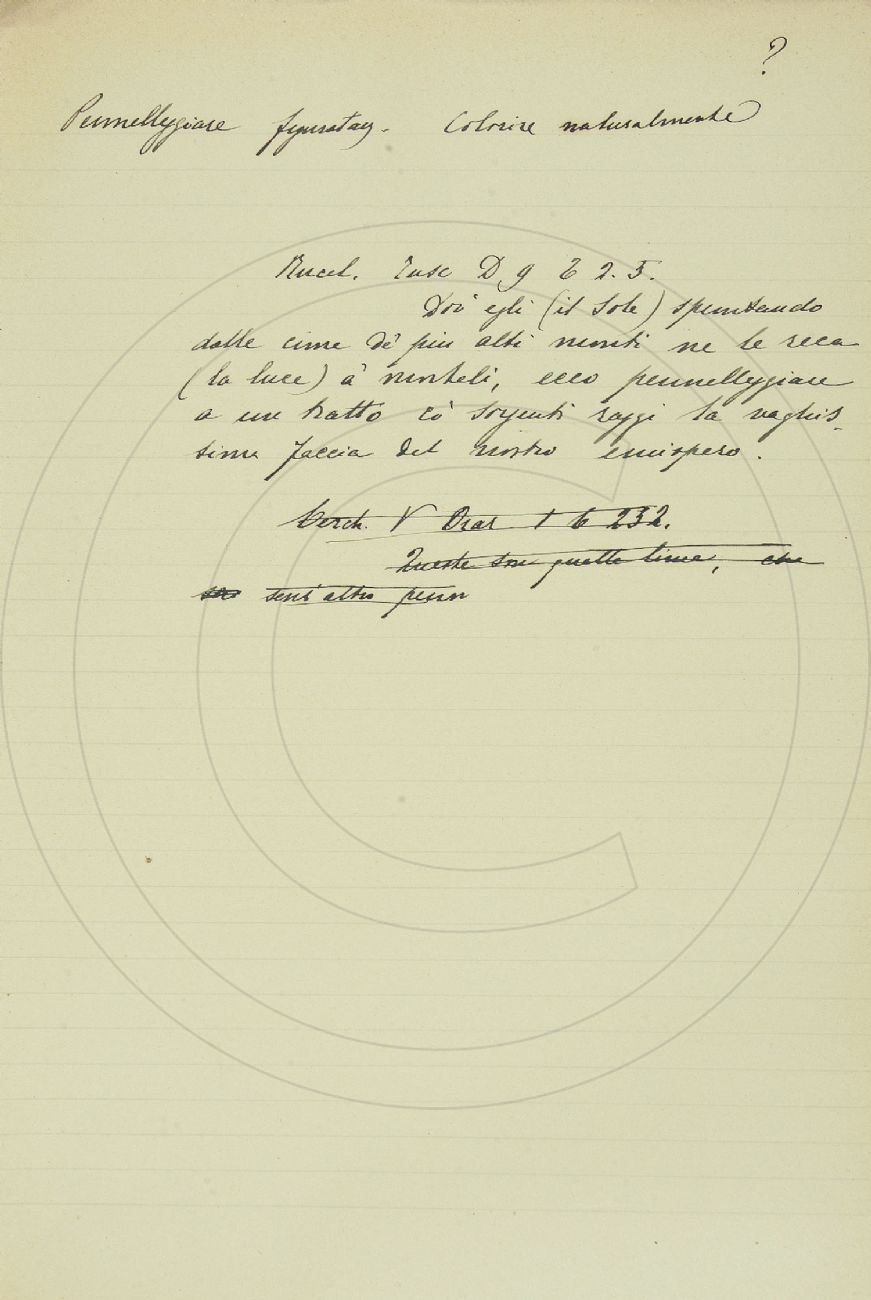 ?
Pennelleggiare figuratay. Colorire naturalmente
Rucel. Tusc D 9 T 2. 5.
egli (il Sole) spuntando
dalle cime de' più alti monti ne le reca
(la luce) a' mortali, ecco pennelleggiare
a un tratto co' sorgenti raggi la vaghis-
sima faccia del nostro emispero.
V Oras 1 232.
Queste son quelle lime, che
senz'altro penn